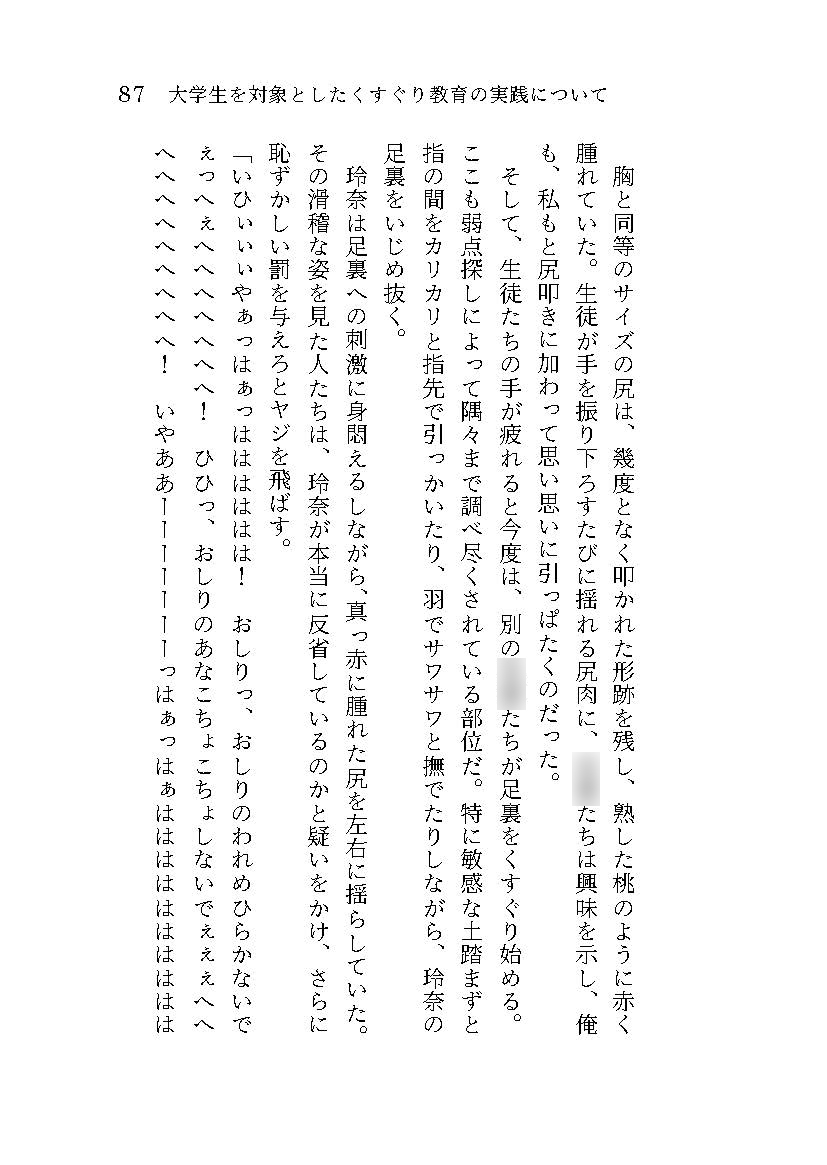 87 大学生を対象としたくすぐり教育の実践について
胸と同等のサイズの尻は、幾度となく叩かれた形跡を残し、熟した桃のように赤く
腫れていた。生徒が手を振り下ろすたびに揺れる尻肉に、たちは興味を示し、俺
も、私もと尻叩きに加わって思い思いに引っぱたくのだった。
そして、生徒たちの手が疲れると今度は、別のたちが足裏をくすぐり始める。
ここも弱点探しによって隅々まで調べ尽くされている部位だ。特に敏感な土踏まずと
指の間をカリカリと指先で引っかいたり、羽でサワサワと撫でたりしながら、玲奈の
足裏をいじめ抜く。
玲奈は足裏への刺激に身悶えるしながら、真っ赤に腫れた尻を左右に揺らしていた。
その滑稽な姿を見た人たちは、玲奈が本当に反省しているのかと疑いをかけ、さらに
恥ずかしい罰を与えろとヤジを飛ばす。
「いひぃぃぃやぁっはぁっはははははは！　おしりっ、おしりのわれめひらかないで
ぇっへぇへへへへへへ！　ひひっ、おしりのあなこちょこちょしないでぇぇぇへへ
へへへへへへへへへ！　いやああーーーーーーーっはぁっはぁはははははははははは